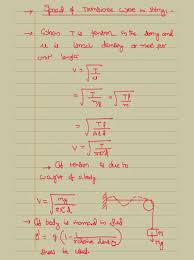 → Speed of Transverse wave in string :-
→ When T is tension in the string and
u is linear density or mass per
unit length
V = √T/u
= √T/m/l
= √Tl/Alρ
V = √T/πr²ρ
→ If tension is due to
weight of a body
V = √Mg/πr²ρ
Mg
→ If body is immersed in fluid
g' = g (1 - 1/relative density)
is used